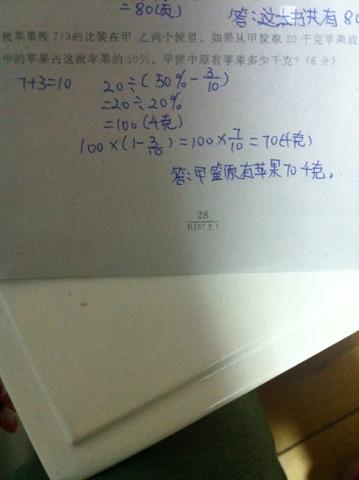 =80(页)
答:这本书共有80
批苹果按7:3的比装在甲、乙两个筐里。如果从甲筐取20千克苹果放
中的苹果占这批苹果的50%。甲筐中原有苹果多少千克?(6分)
7+3=10
20÷(50%-3/10)
=20÷20%
=100(千克)
100×(1-3/10)=100×7/10=70(千克)
答:甲筐原有苹果70千克。
28